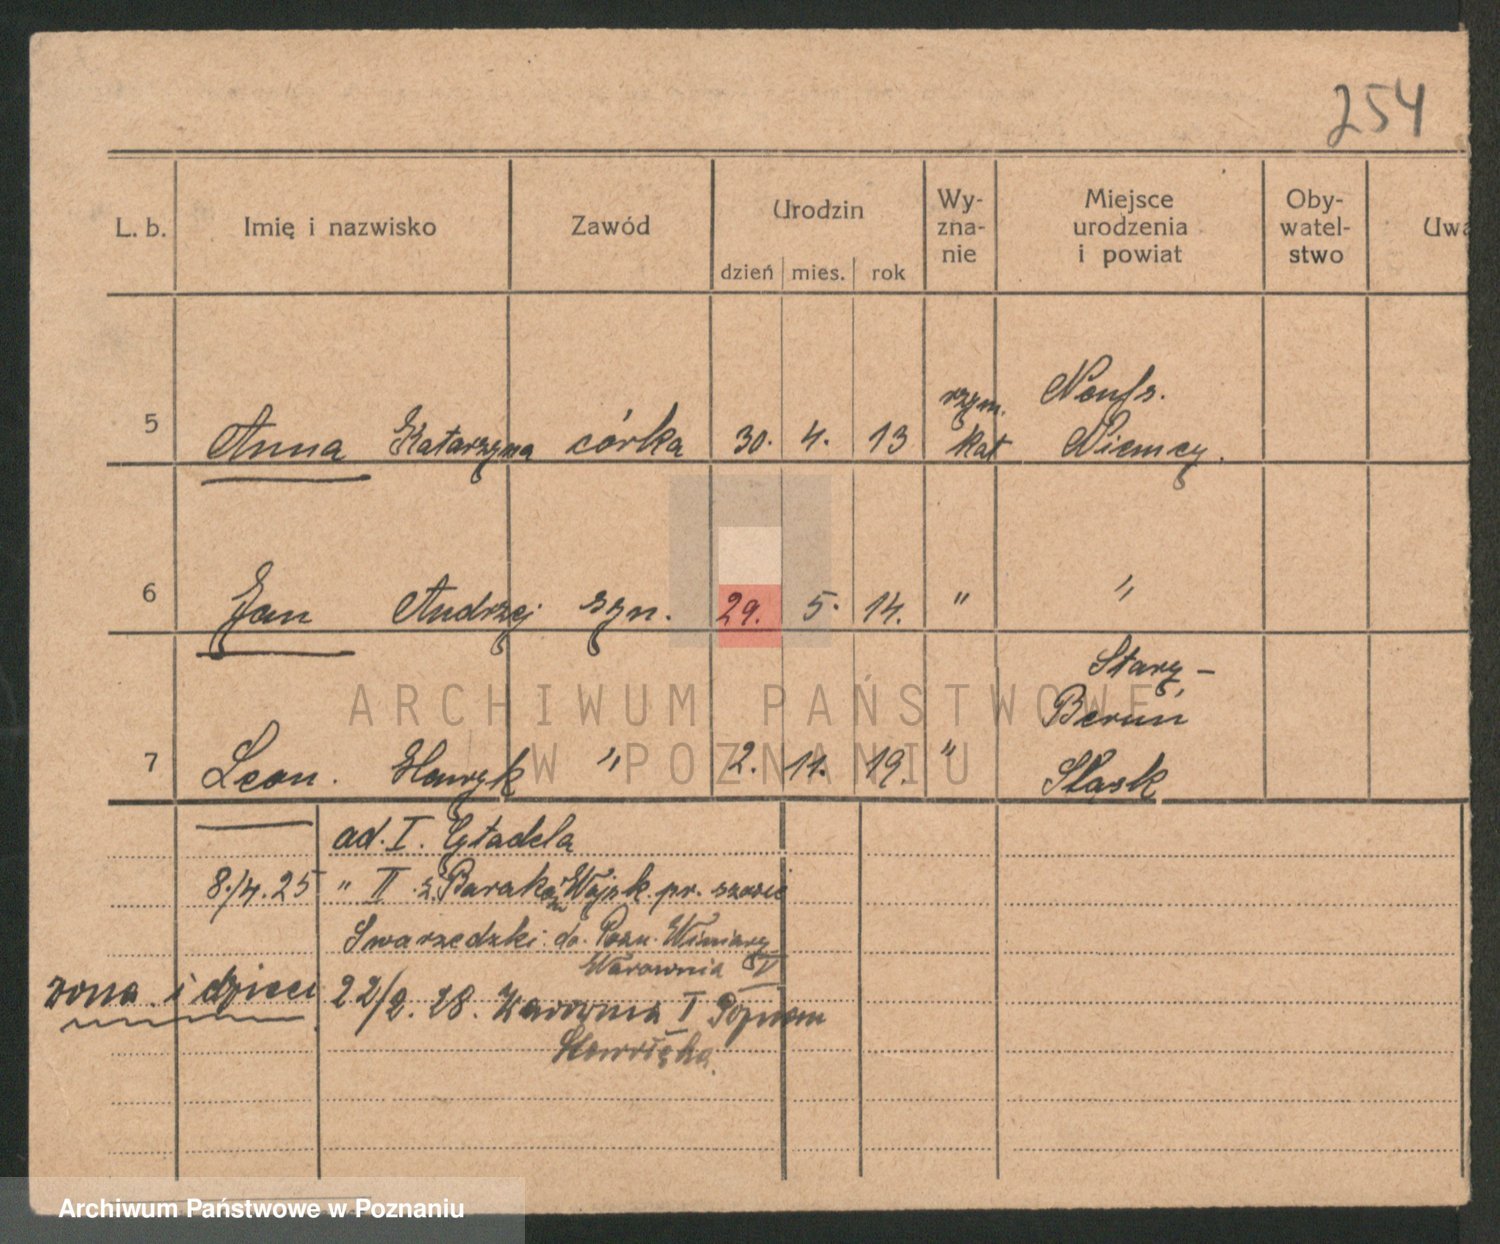 254
L. b.
Imię i nazwisko
Zawód
Urodzin
dzień mies. rok
Wy-
zna-
nie
Miejsce
urodzenia
i powiat
Oby-
watel-
stwo
Uwa
rzym. Neufs.
5 Anna Katarzyna córka 30. 4. 13 kat Niemcy.
6 Jan Andrzej syn. 29. 5. 14. " "
Stary-
Beruń
7 Leon. Henryk " 2. 11. 19. " Śląsk
ad. I. Cytadela
8./4.25 " II. z Baraków Wojsk. pr. szosie
Swarzedzki do Pozn. Winiary
Warownia
żona i dzieci 22/2. 28. Warownia I Poznań
ARCHIWUM PAŃSTWOWE
W POZNANIU
Archiwum Państwowe w Poznaniu